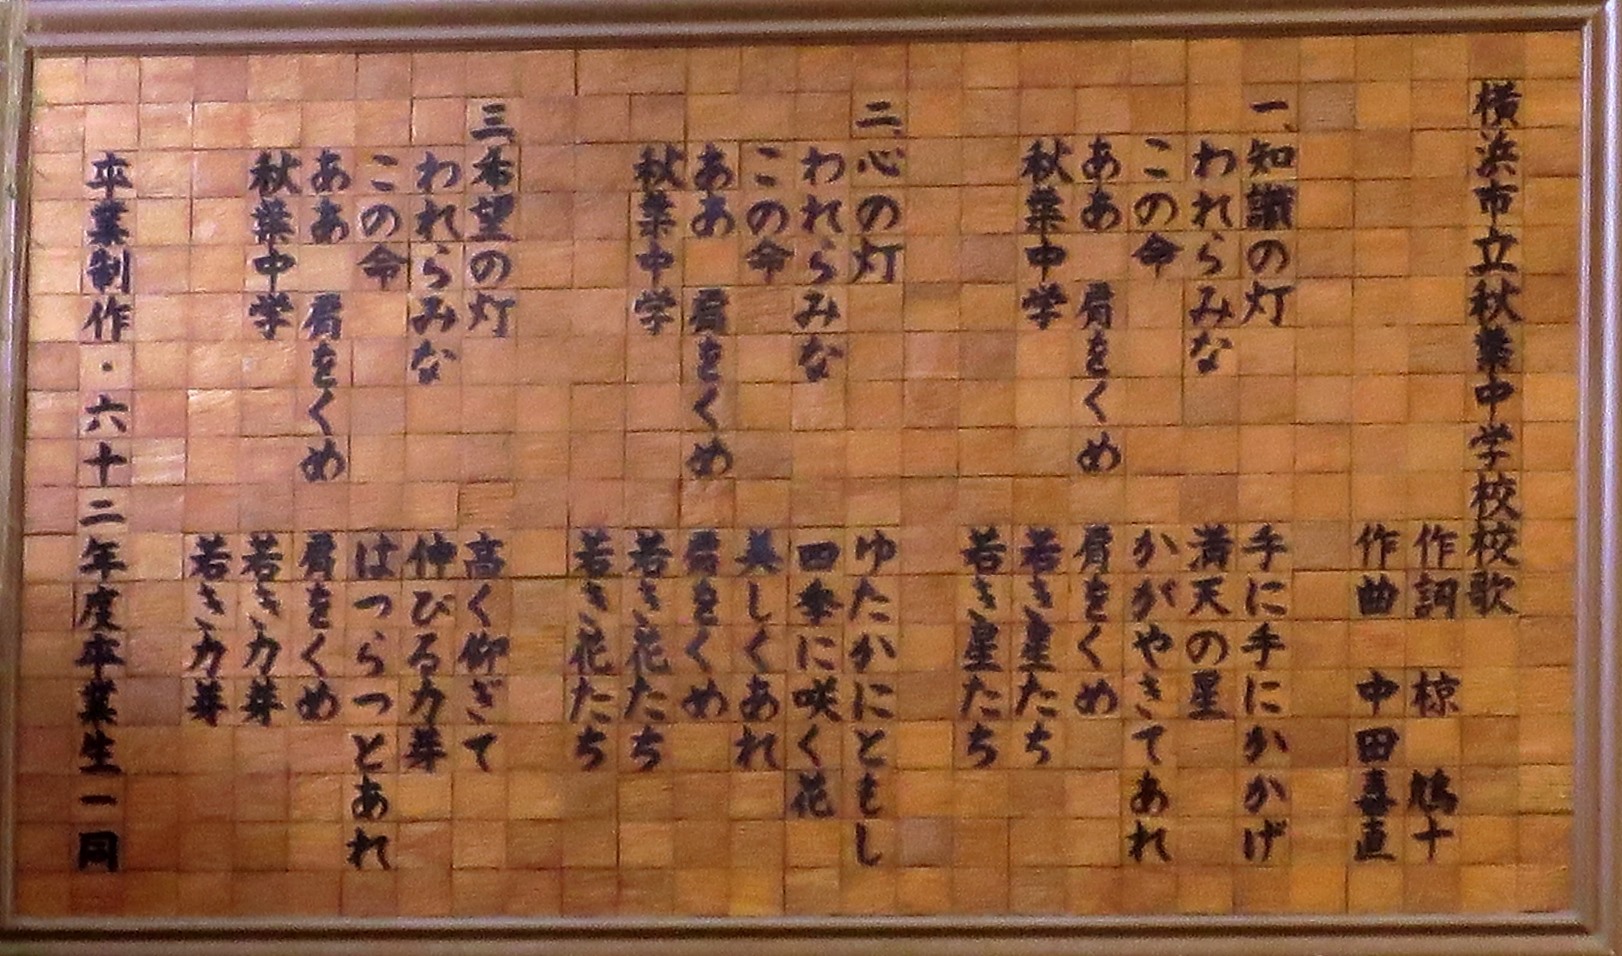 横浜市立秋葉中学校校歌
作詞 椋 鳩十
作曲 中田喜直
一、知識の灯 手に手にかかげ
われらみな 満天の星
この命 かがやきてあれ
ああ 肩をくめ 肩をくめ
秋葉中学 若き星たち
若き星たち
二、心の灯 ゆたかにともし
われらみな 四季に咲く花
この命 美しくあれ
ああ 肩をくめ 肩をくめ
秋葉中学 若き花たち
若き花たち
三、希望の灯 高く仰ぎて
われらみな 伸びる力芽
この命 はつらつとあれ
ああ 肩をくめ 肩をくめ
秋葉中学 若き力芽
若き力芽
卒業制作・六十二年度卒業生一同